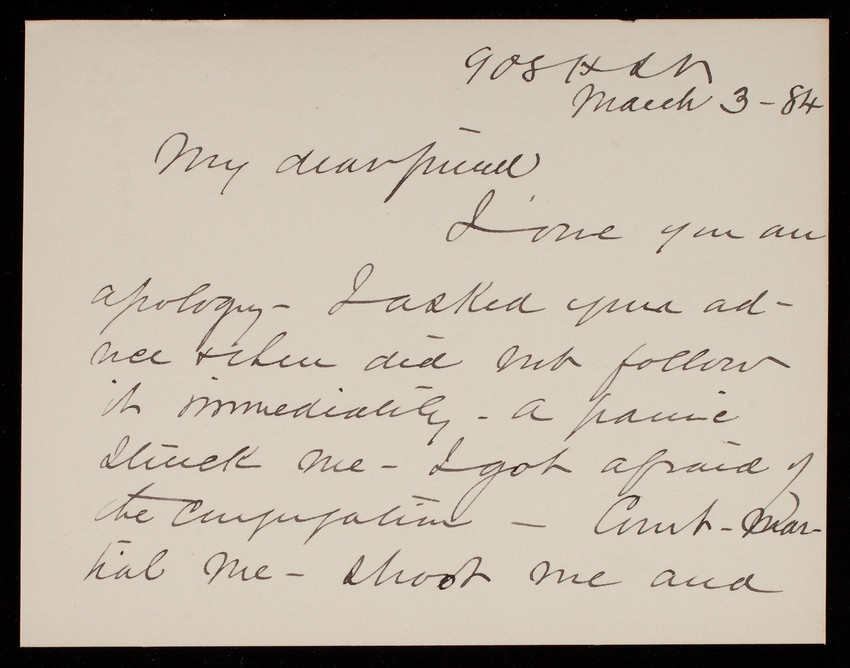 908 H St
March 3 - 84
My dear friend
I owe you an
apology - I asked your ad-
vice & then did not follow
it immediately - A panic
struck me - I got afraid of
the congregation - Court-Mar-
tial me - shoot me and